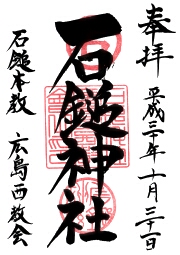 奉拝
平成三十年十月三十一日
石鎚神社
石鎚本教
広島西教会